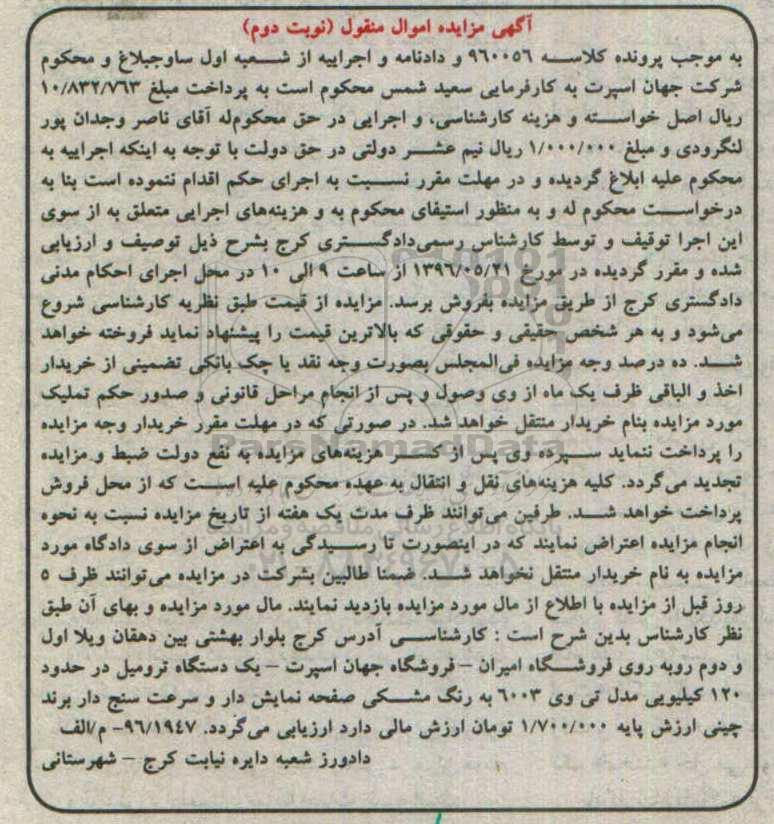 آگهی مزایده اموال منقول (نوبت دوم)
به موجب پرونده کلاسه ۹۶۰۰۵۶ و دادنامه و اجراییه از شعبه اول ساوجبلاغ و محکوم
شرکت جهان اسپرت به کارفرمایی سعید شمس محکوم است به پرداخت مبلغ ۱۰/۸۳۲/۷۶۳
ریال اصل خواسته و هزینه کارشناسی، و اجرایی در حق محکوم‌له آقای ناصر وجدان پور
لنگرودی و مبلغ ۱/۰۰۰/۰۰۰ ریال نیم عشر دولتی در حق دولت با توجه به اینکه اجراییه به
محکوم علیه ابلاغ گردیده و در مهلت مقرر نسبت به اجرای حکم اقدام ننموده است بنا به
درخواست محکوم له و به منظور استیفای محکوم به و هزینه‌های اجرایی متعلق به از سوی
این اجرا توقیف و توسط کارشناس رسمی‌دادگستری کرج بشرح ذیل توصیف و ارزیابی
شده و مقرر گردیده در مورخ ۱۳۹۶/۰۵/۲۱ از ساعت ۹ الی ۱۰ در محل اجرای احکام مدنی
دادگستری کرج از طریق مزایده بفروش برسد. مزایده از قیمت طبق نظریه کارشناسی شروع
می‌شود و به هر شخص حقیقی و حقوقی که بالاترین قیمت را پیشنهاد نماید فروخته خواهد
شد. ده درصد وجه مزایده فی‌المجلس بصورت وجه نقد یا چک بانکی تضمینی از خریدار
اخذ و الباقی ظرف یک ماه از وی وصول و پس از انجام مراحل قانونی و صدور حکم تملیک
مورد مزایده بنام خریدار منتقل خواهد شد. در صورتی که در مهلت مقرر خریدار وجه مزایده
را پرداخت ننماید سپرده وی پس از کسر هزینه‌های مزایده به نفع دولت ضبط و مزایده
تجدید می‌گردد. کلیه هزینه‌های نقل و انتقال به عهده محکوم علیه است که از محل فروش
پرداخت خواهد شد. طرفین می‌توانند ظرف مدت یک هفته از تاریخ مزایده نسبت به نحوه
انجام مزایده اعتراض نمایند که در اینصورت تا رسیدگی به اعتراض از سوی دادگاه مورد
مزایده به نام خریدار منتقل نخواهد شد. ضمنا طالبین بشرکت در مزایده می‌توانند ظرف ۵
روز قبل از مزایده با اطلاع از مال مورد مزایده بازدید نمایند. مال مورد مزایده و بهای آن طبق
نظر کارشناس بدین شرح است : کارشناسی آدرس کرج بلوار بهشتی بین دهقان ویلا اول
و دوم روبه روی فروشگاه امیران – فروشگاه جهان اسپرت – یک دستگاه ترومیل در حدود
۱۲۰ کیلیویی مدل تی وی ۶۰۰۳ به رنگ مشکی صفحه نمایش دار و سرعت سنج دار برند
چینی ارزش پایه ۱/۷۰۰/۰۰۰ تومان ارزش مالی دارد ارزیابی می‌گردد. ۹۶/۱۹۴۷- م/الف
دادورز شعبه دایره نیابت کرج – شهرستانی
ParsNamadData